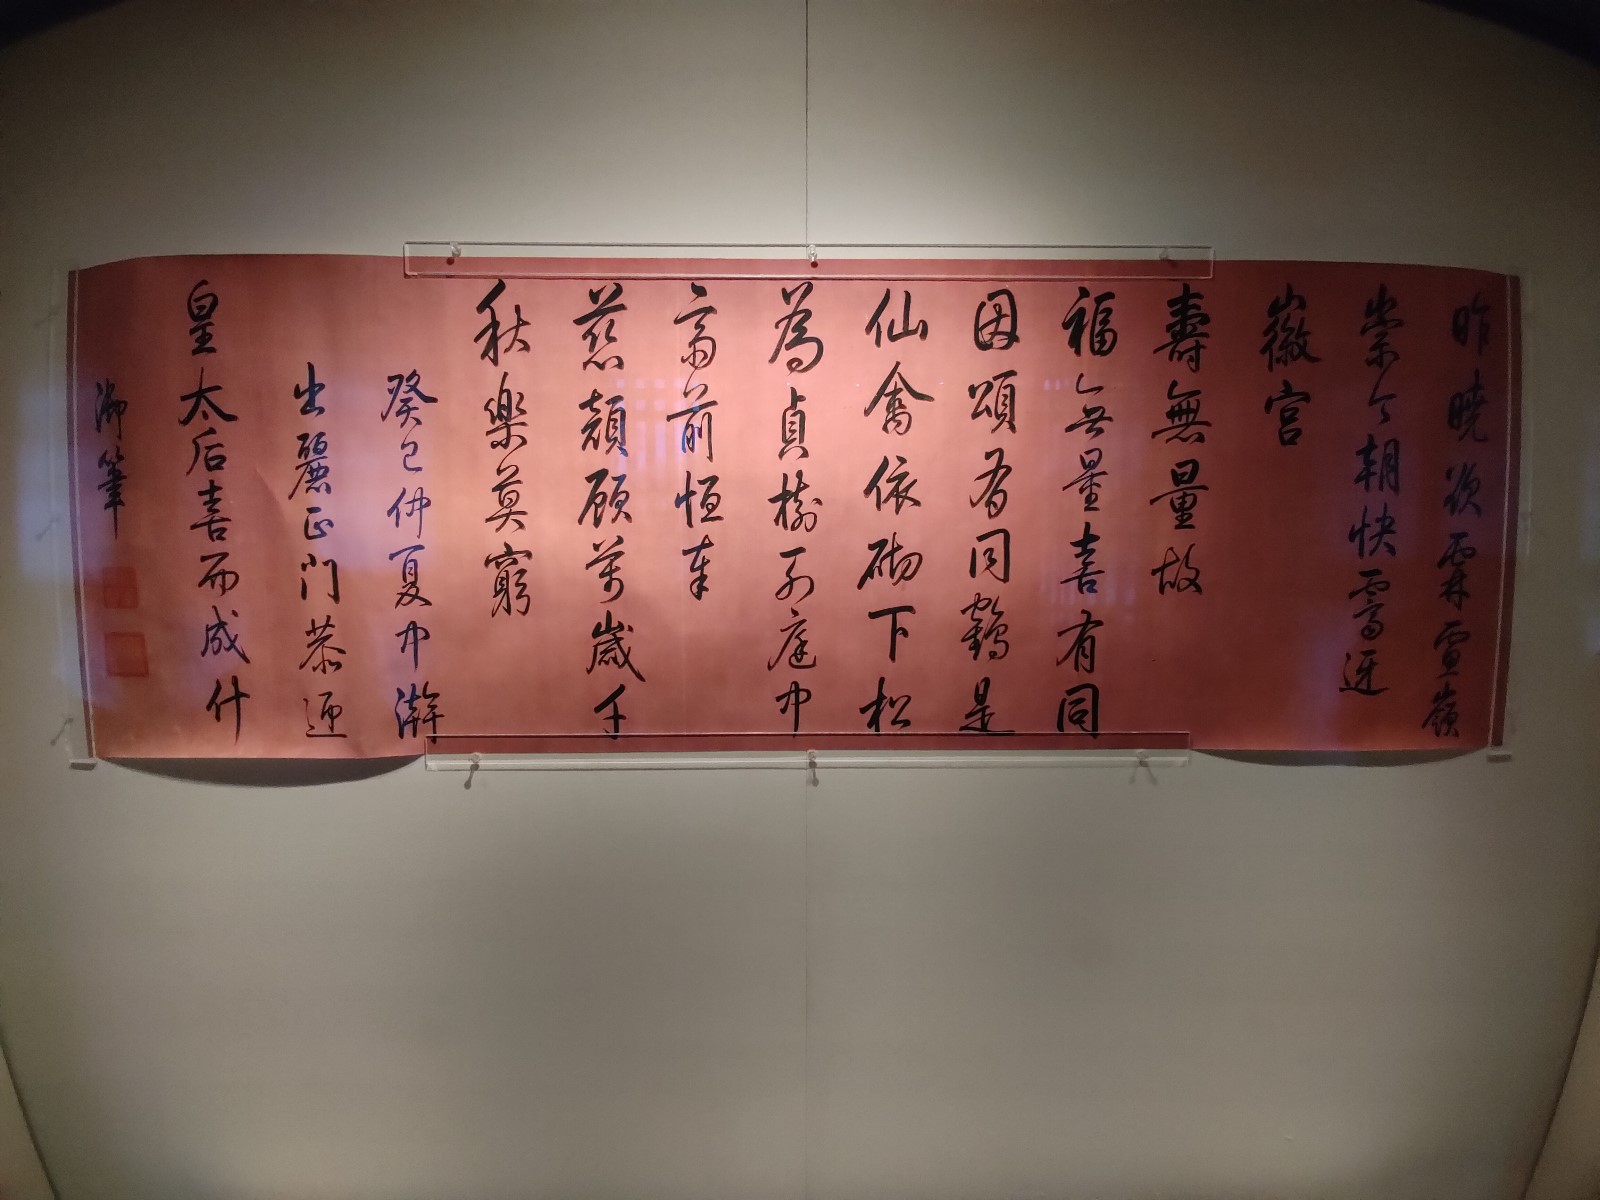 昨曉欲霖雲嶺
崇今朝快霽迓
徽宮
壽無量故
福無量喜有同
因頌有同鶴是
仙禽依砌下松
為貞樹列庭中
齋前恒奉
慈顏顧萬歲千
秋樂莫窮
癸巳仲夏中澣
出麗正門恭迎
皇太后喜而成什
御筆